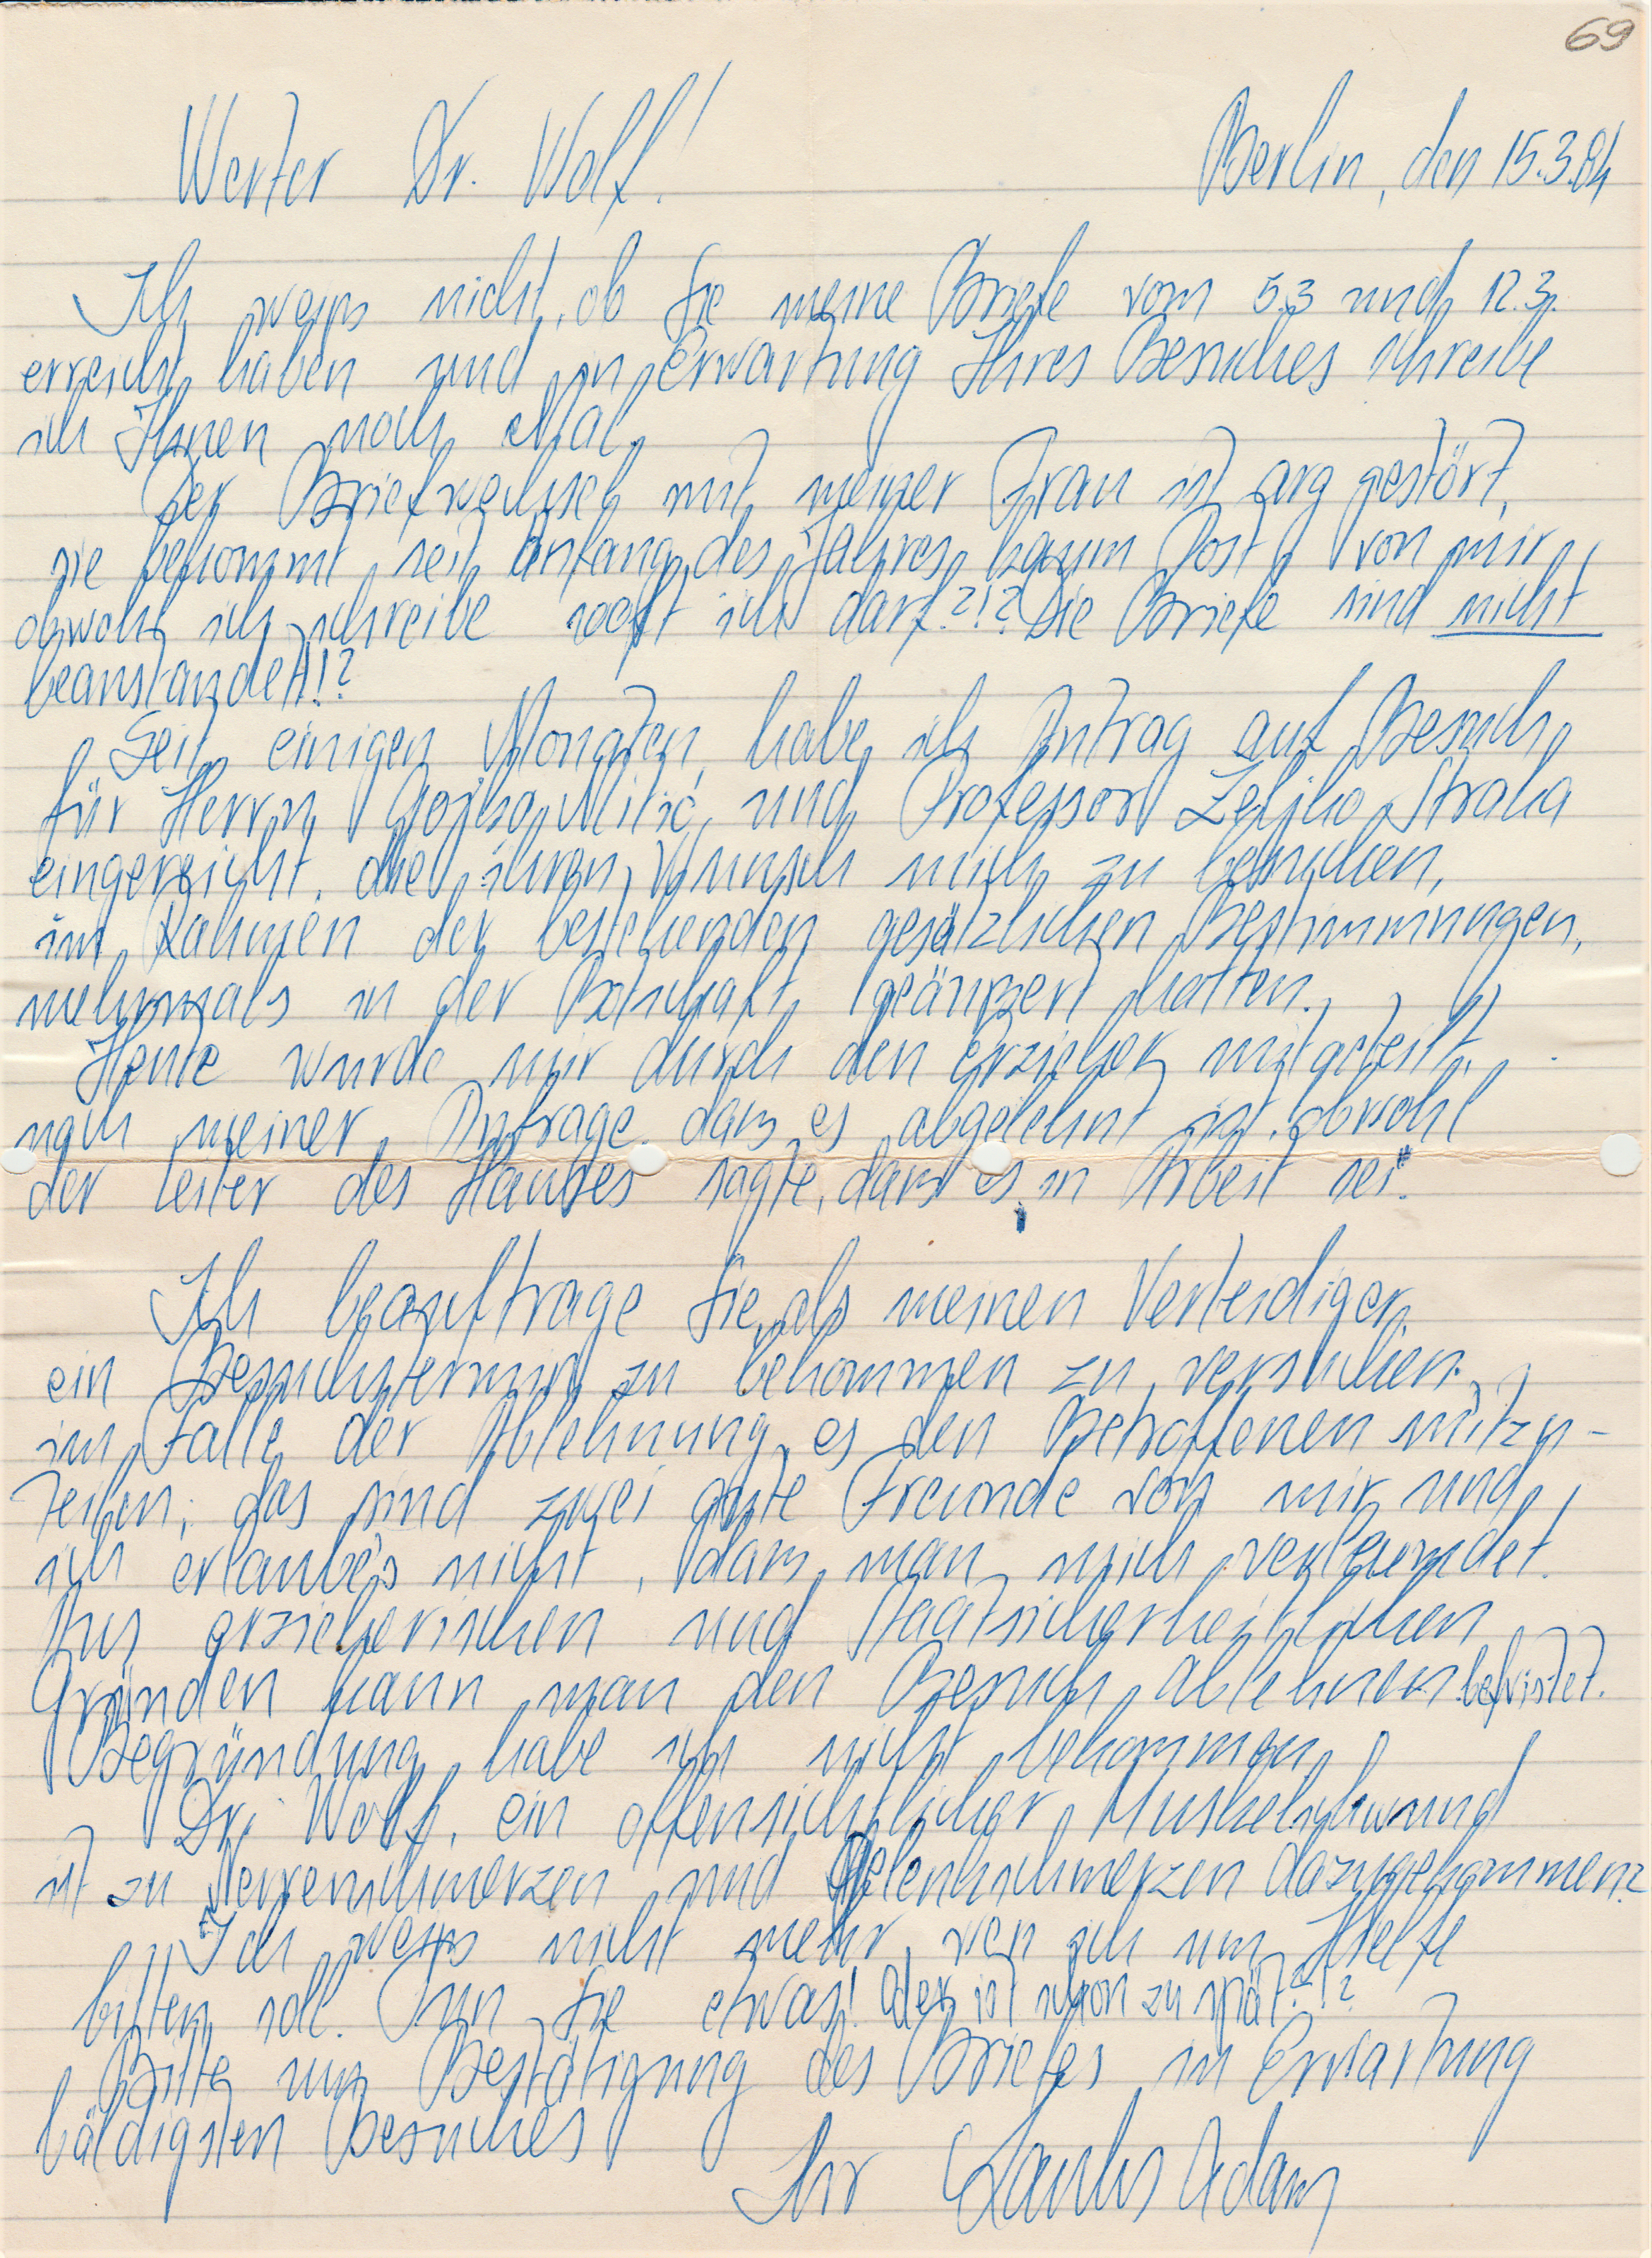 69
Werter Dr. Wolf!
Berlin, den 15.3.84
Ich weiss nicht, ob Sie meine Briefe vom 5.3 und 12.3.
erreicht haben und in Erwartung Ihres Besuches schreibe
ich Ihnen noch einmal.
Der Briefwechsel mit meiner Frau ist arg gestört,
sie bekommt seit Anfang des Jahres kaum Post von mir,
obwohl ich schreibe sooft ich darf?!? Die Briefe sind nicht
beanstandet!!?
Seit einigen Monaten habe ich Antrag auf Besuch
für Herrn Gojko Milić und Professor Zeljko Straka
eingereicht, die ihren Wunsch mich zu besuchen,
im Rahmen der bestehenden gesätzlichen Bestimmungen,
mehrmals in der Botschaft geäußert hatten.
Heute wurde mir durch den Erzieher mitgeteilt,
nach meiner Anfrage, dass es abgelehnt ist, obwohl
der Leiter des Hauses sagte, dass es in Arbeit sei.
Ich beauftrage Sie, als meinen Verteidiger,
ein Besuchstermin zu bekommen zu versuchen,
im Falle der Ablehnung, es den Betroffenen mitzu-
teilen; das sind zwei gute Freunde von mir und
ich erlaube's nicht, dass man mich verleumdet.
Aus erzieherischen und Staatsicherheitlichen
Gründen kann man den Besuch ablehnen befristet.
Begründung habe ich nicht bekommen.
Dr. Wolf, ein offensichtlicher Muskelschwund
ist zu Nervenschmerzen und Gelenkschmerzen dazugekommen?
Ich weiss nicht mehr, wen ich um Hilfe
bitten soll. Tun Sie etwas! Oder ist schon zu spät?!?
Bitte um Bestätigung des Briefes in Erwartung
bäldigsten Besuches
Ihr Adam